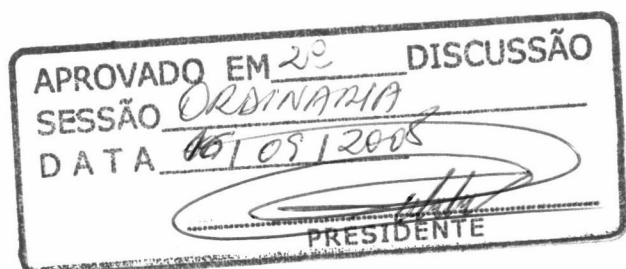 APROVADO EM 2º DISCUSSÃO
SESSÃO ORDINARIA
DATA /09/2005
PRESIDENTE